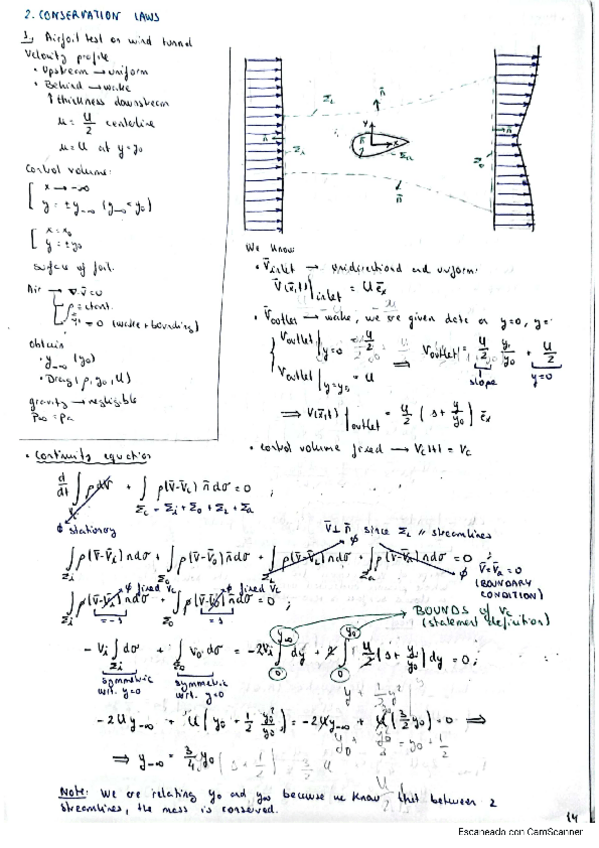 2. CONSERVATION LAWS
1. Airfoil test on wind tunnel
Velocity profile
• Upstream → uniform
• Behind → wake
↑ thickness downstream
u = U/2 centerline
u = U at y = y₀
Control volume:
x → -∞
y = ± y₋∞ (y₋∞ < y₀)
x = x₀
y = ± y₀
surface of foil.
Air → ∇·v̄ = 0
ρ = ctant.
= 0 (wake + bounding)
Obtain
• y₋∞ (y₀)
• Drag (ρ, y₀, U)
gravity → negligible
p∞ = pa
ΣL
n̄
y
x
Σi
Σa
Σo
n̄
We know:
• V̄inlet → unidirectional and uniform:
V̄(x̄,t)|inlet = U ēx
• V̄outlet → wake, we are given data on y=0, y=
Voutlet|y=0 = U/2
Voutlet|y=y₀ = U
⟹ Voutlet| = U/2 y/y₀ + U/2
slope
y=0
⟹ V(x̄,t)|outlet = U/2 (1 + y/y₀) ēx
• control volume fixed → Vc(t) = Vc
• Continuity equation
d/dt ∫ ρ dV + ∫ ρ(v̄-v̄c) n̄ dσ = 0 ;
Σc = Σi + Σo + ΣL + Σa
∅ stationary
v̄ ⊥ n̄ since ΣL // streamlines
∫Σi ρ(v̄-v̄c) n̄dσ + ∫Σo ρ(v̄-v̄c) n̄dσ + ∫ΣL ρ(v̄-v̄c) n̄dσ + ∫Σa ρ(v̄-v̄c) n̄dσ = 0 ;
∅
∅ v̄ = v̄c = 0
(BOUNDARY CONDITION)
∅ fixed Vc
∅ fixed Vc
∫Σi ρ(v̄-v̄c) n̄dσ + ∫Σo ρ(v̄-v̄c) n̄dσ = 0 ;
= -1
= 1
BOUNDS of Vc
(statement definition)
- Vi ∫Σi dσ + ∫Σo vo dσ = -2Vi ∫₀^y₋∞ dy + 2 ∫₀^y₀ U/2 (1 + y/y₀) dy = 0 ;
symmetric wrt. y=0
symmetric wrt. y=0
-2U y₋∞ + U (y₀ + 1/2 y₀²/y₀) = -2U y₋∞ + U (3/2 y₀) = 0 ⟹
⟹ y₋∞ = 3/4 y₀
Note: We are relating y₀ and y∞ because we know that between 2
streamlines, the mass is conserved.
14
Escaneado con CamScanner